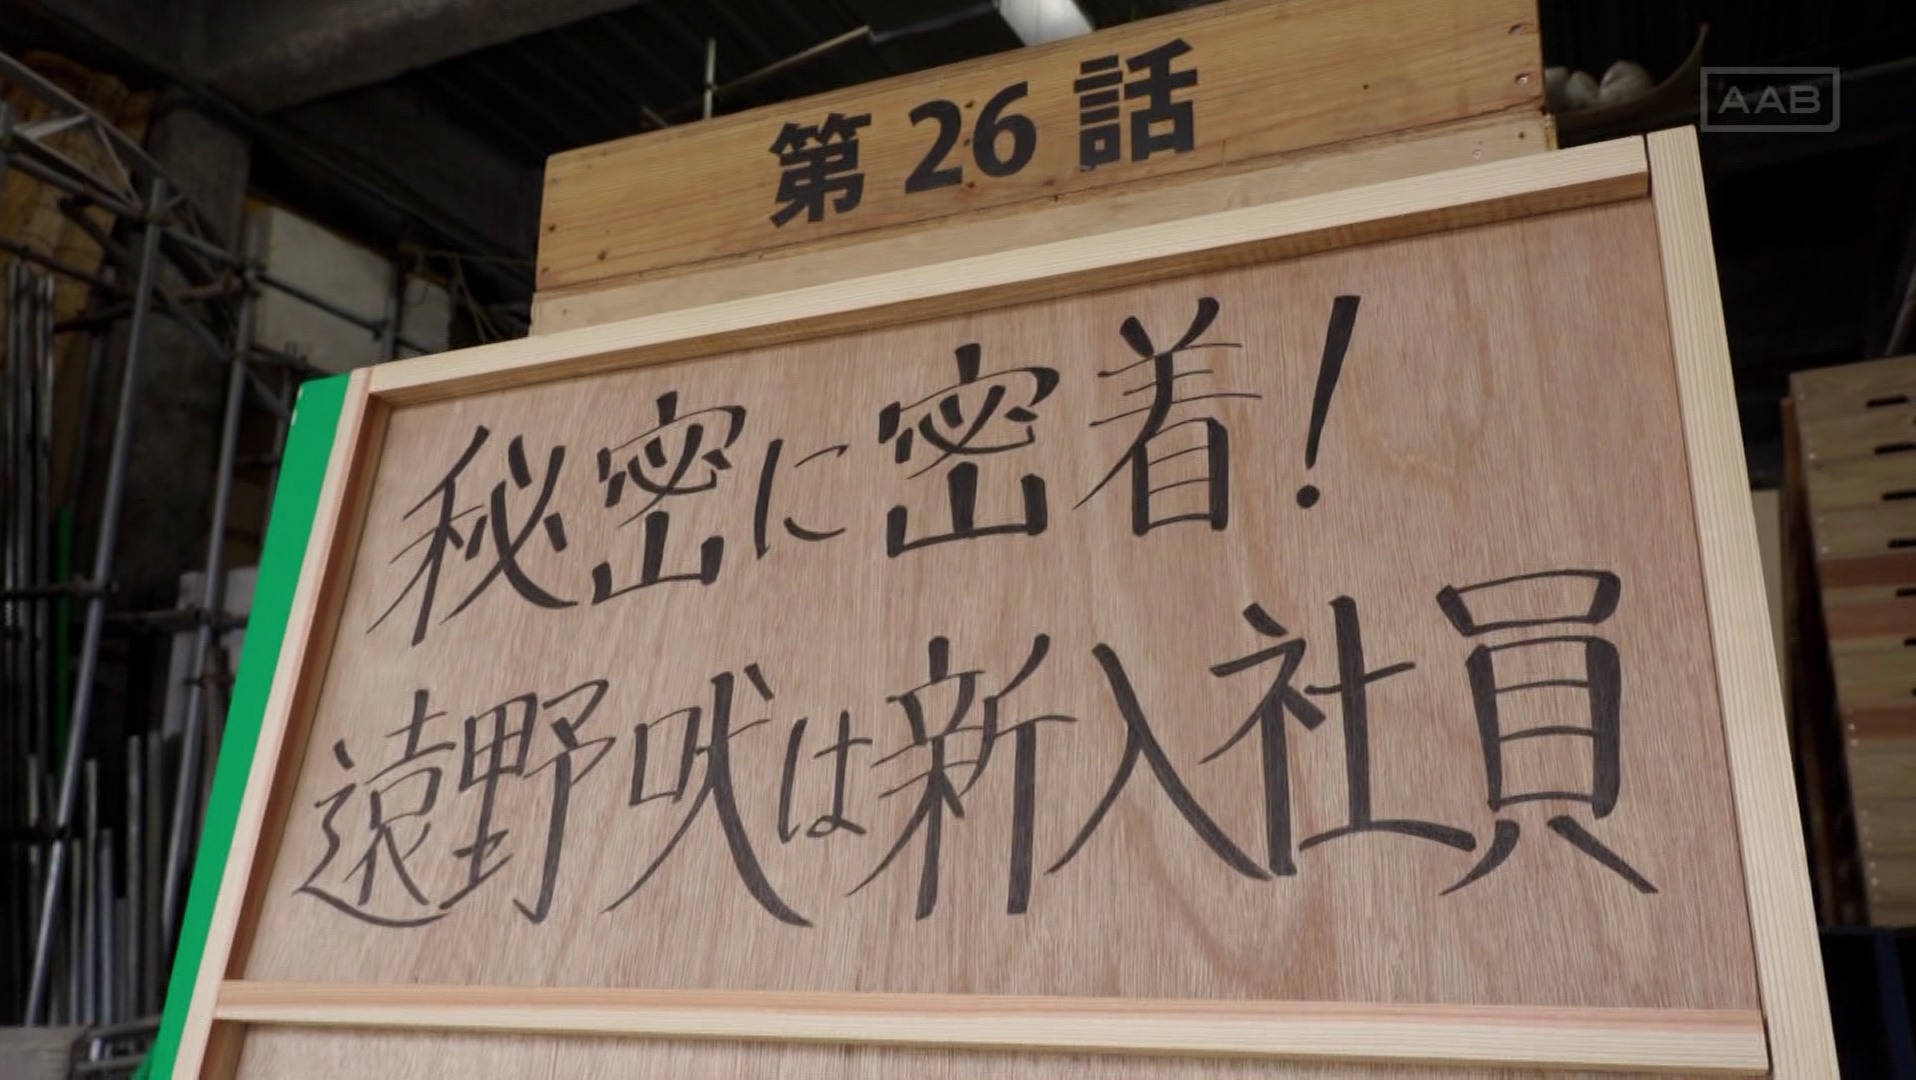 第26話
AAB
秘密に密着!
遠野吠は新入社員